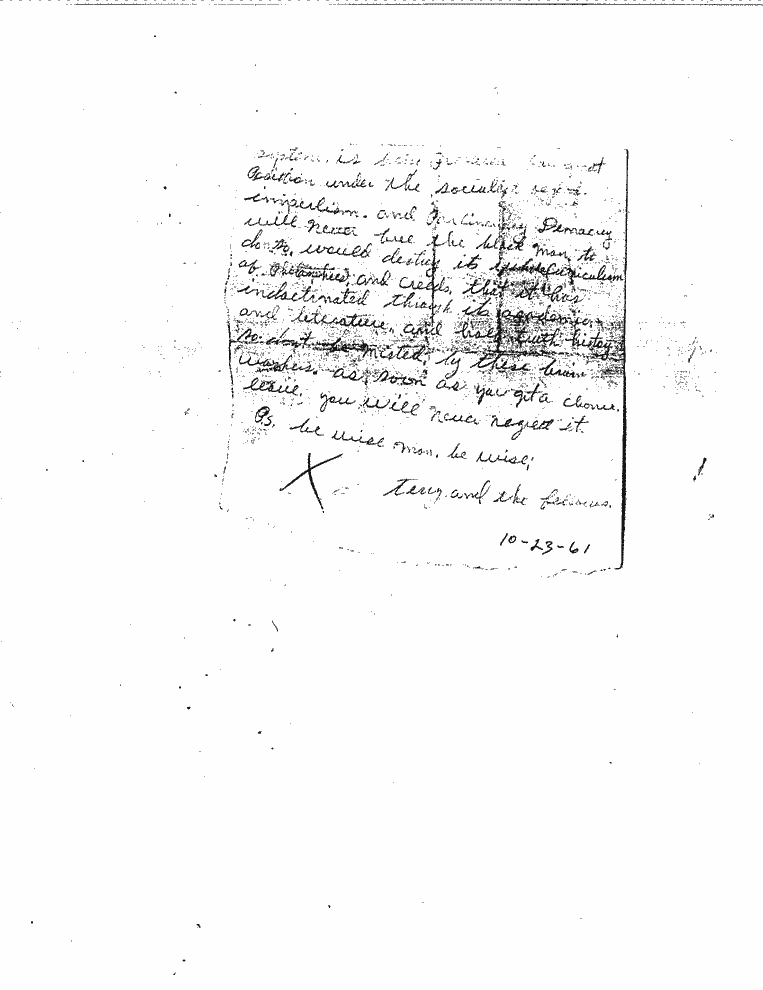 system. is
position under the socialist
imperlism. and Demacracy
will never free the black man, to
do so, would destroy it's
of and creeds, that it has
indoctrinated through its academics
and literature, and half truth history
So don't be misled, by these brain
washers. as soon as you get a chance.
leave. you will never regret it.
Ps. be wise man. be wise;
X Terry and the fellows.
10-23-61